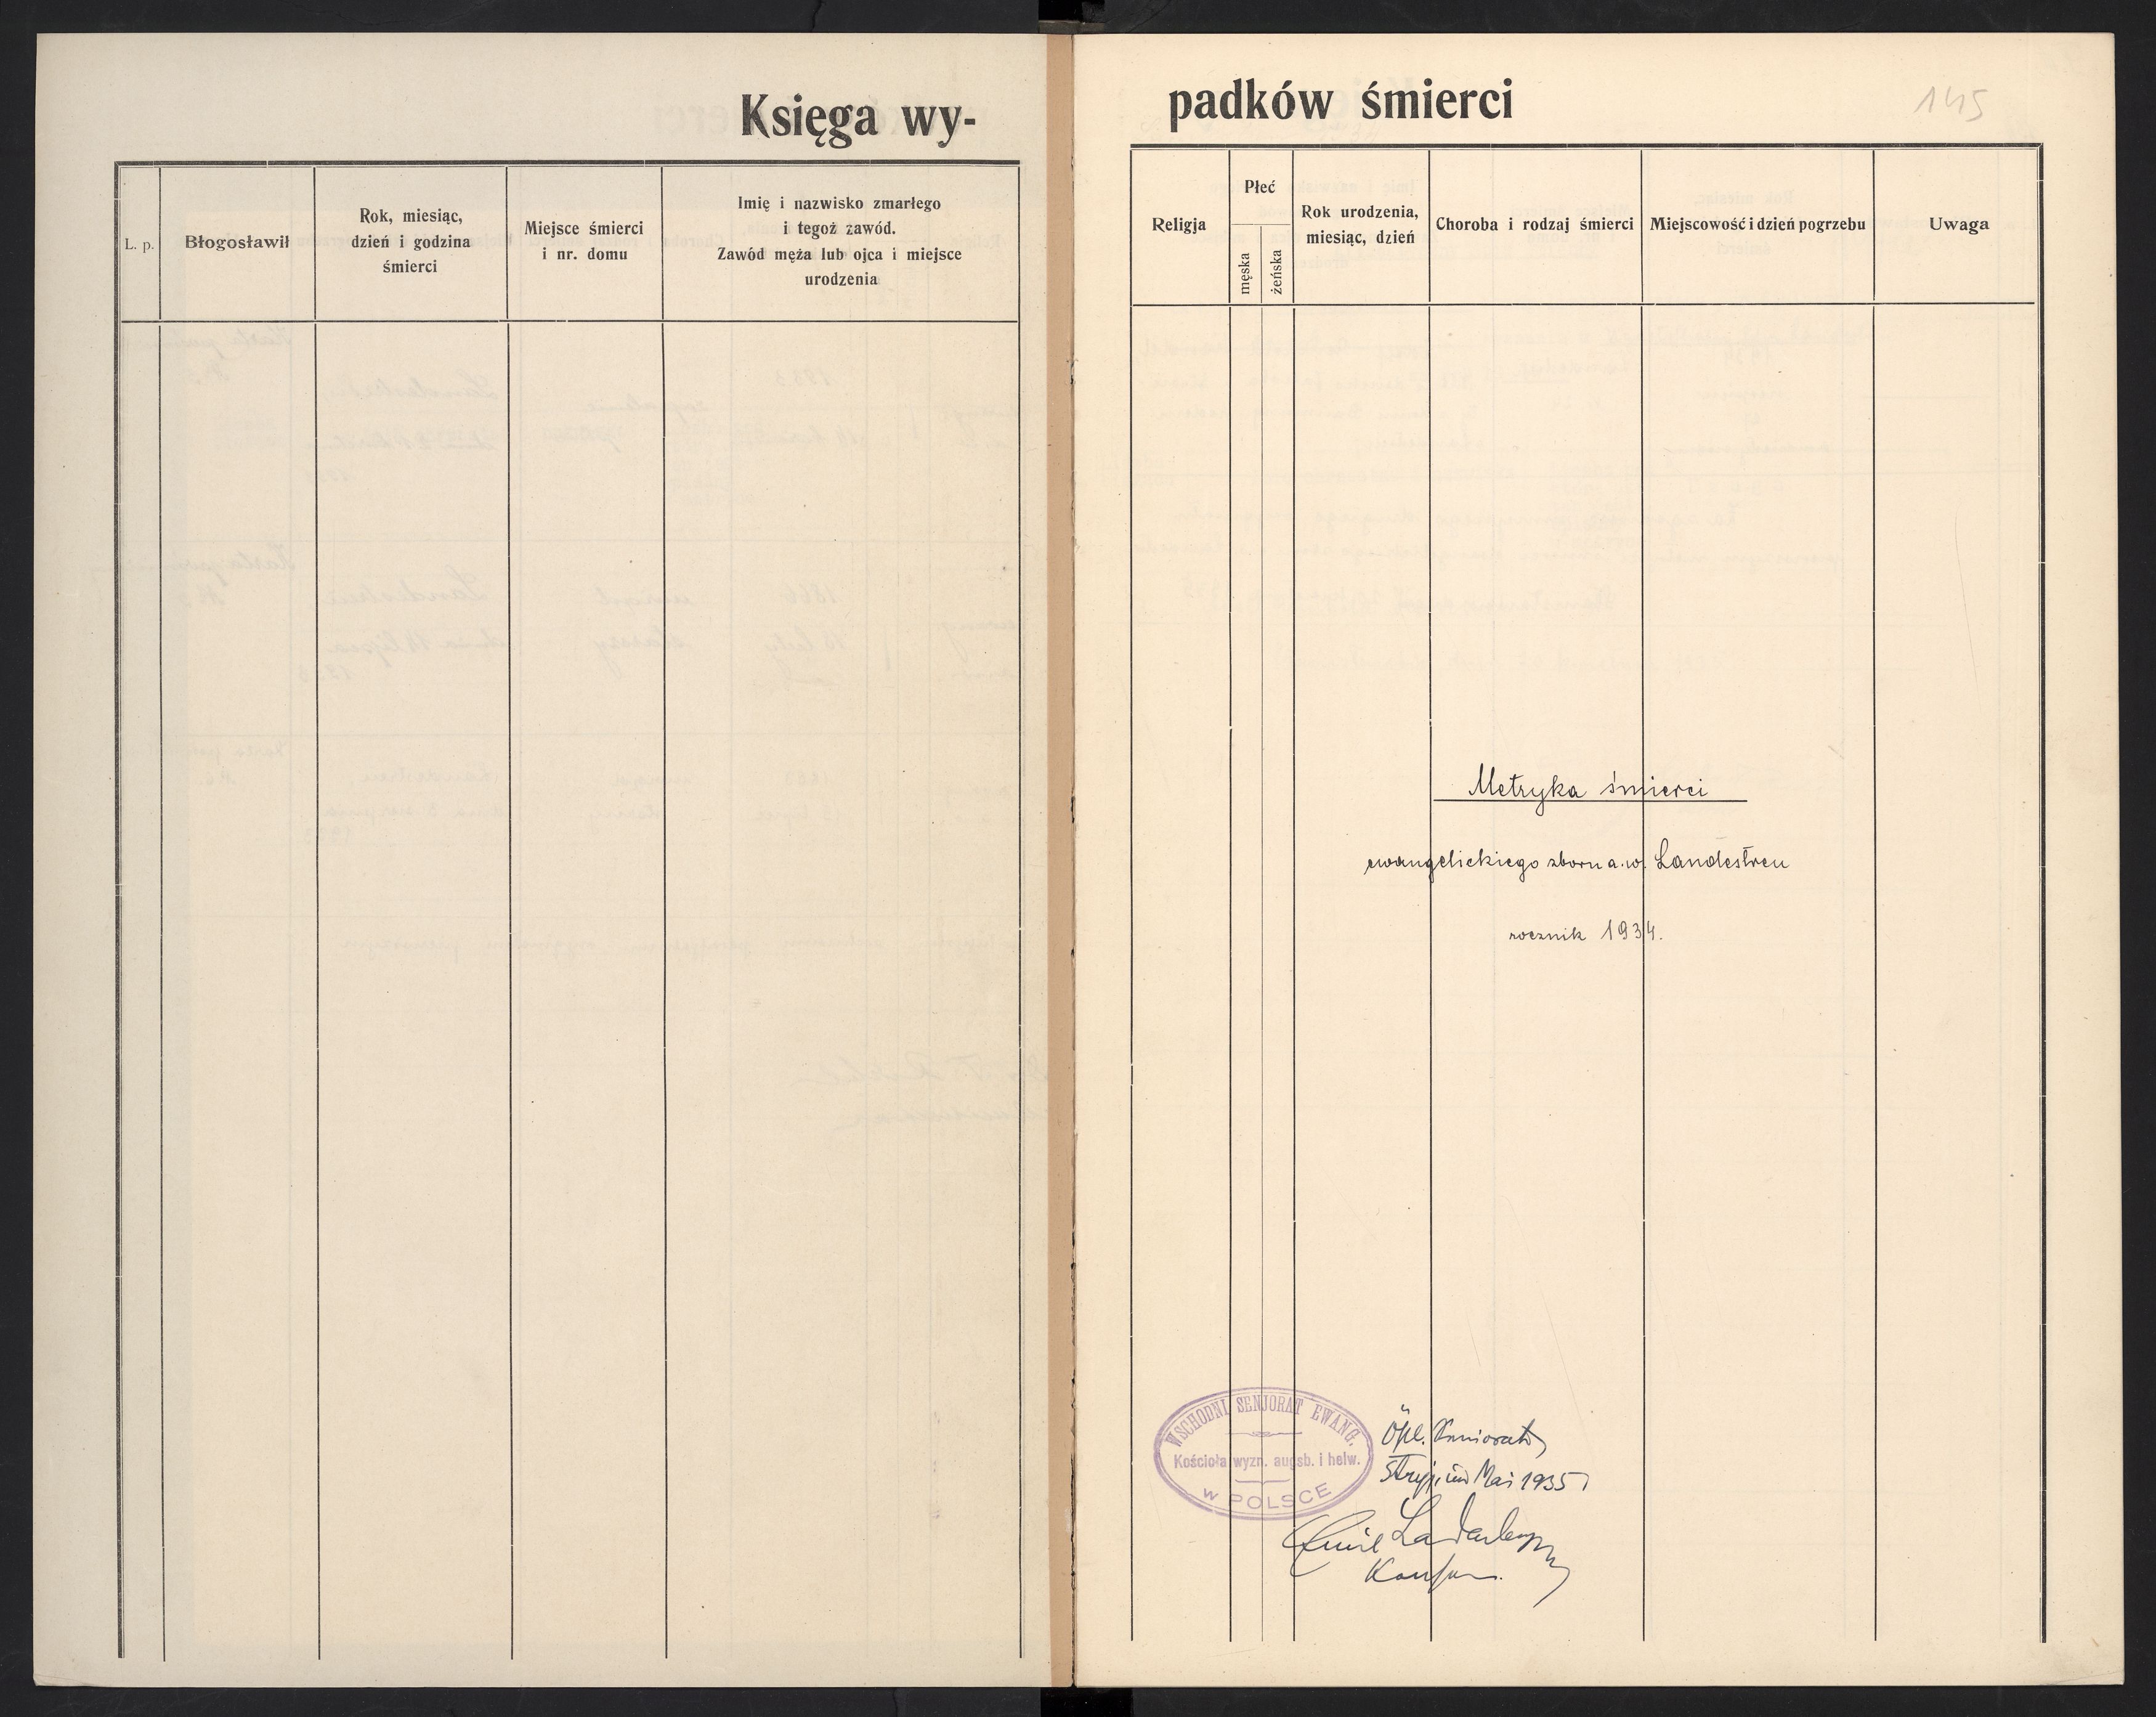 Księga wy-
padków śmierci
145
L. p.
Błogosławił
Rok, miesiąc,
dzień i godzina
śmierci
Miejsce śmierci
i nr. domu
Imię i nazwisko zmarłego
i tegoż zawód.
Zawód męża lub ojca i miejsce
urodzenia
Religja
Płeć
męska
żeńska
Rok urodzenia,
miesiąc, dzień
Choroba i rodzaj śmierci
Miejscowość i dzień pogrzebu
Uwaga
Metryka śmierci
ewangelickiego zboru a.w. Landestreu
rocznik 1934.
WSCHODNI SENJORAT EWANG.
Kościoła wyzn. augsb. i helw.
w POLSCE
Stryj, im Mai 1935
Emil Ladenberger